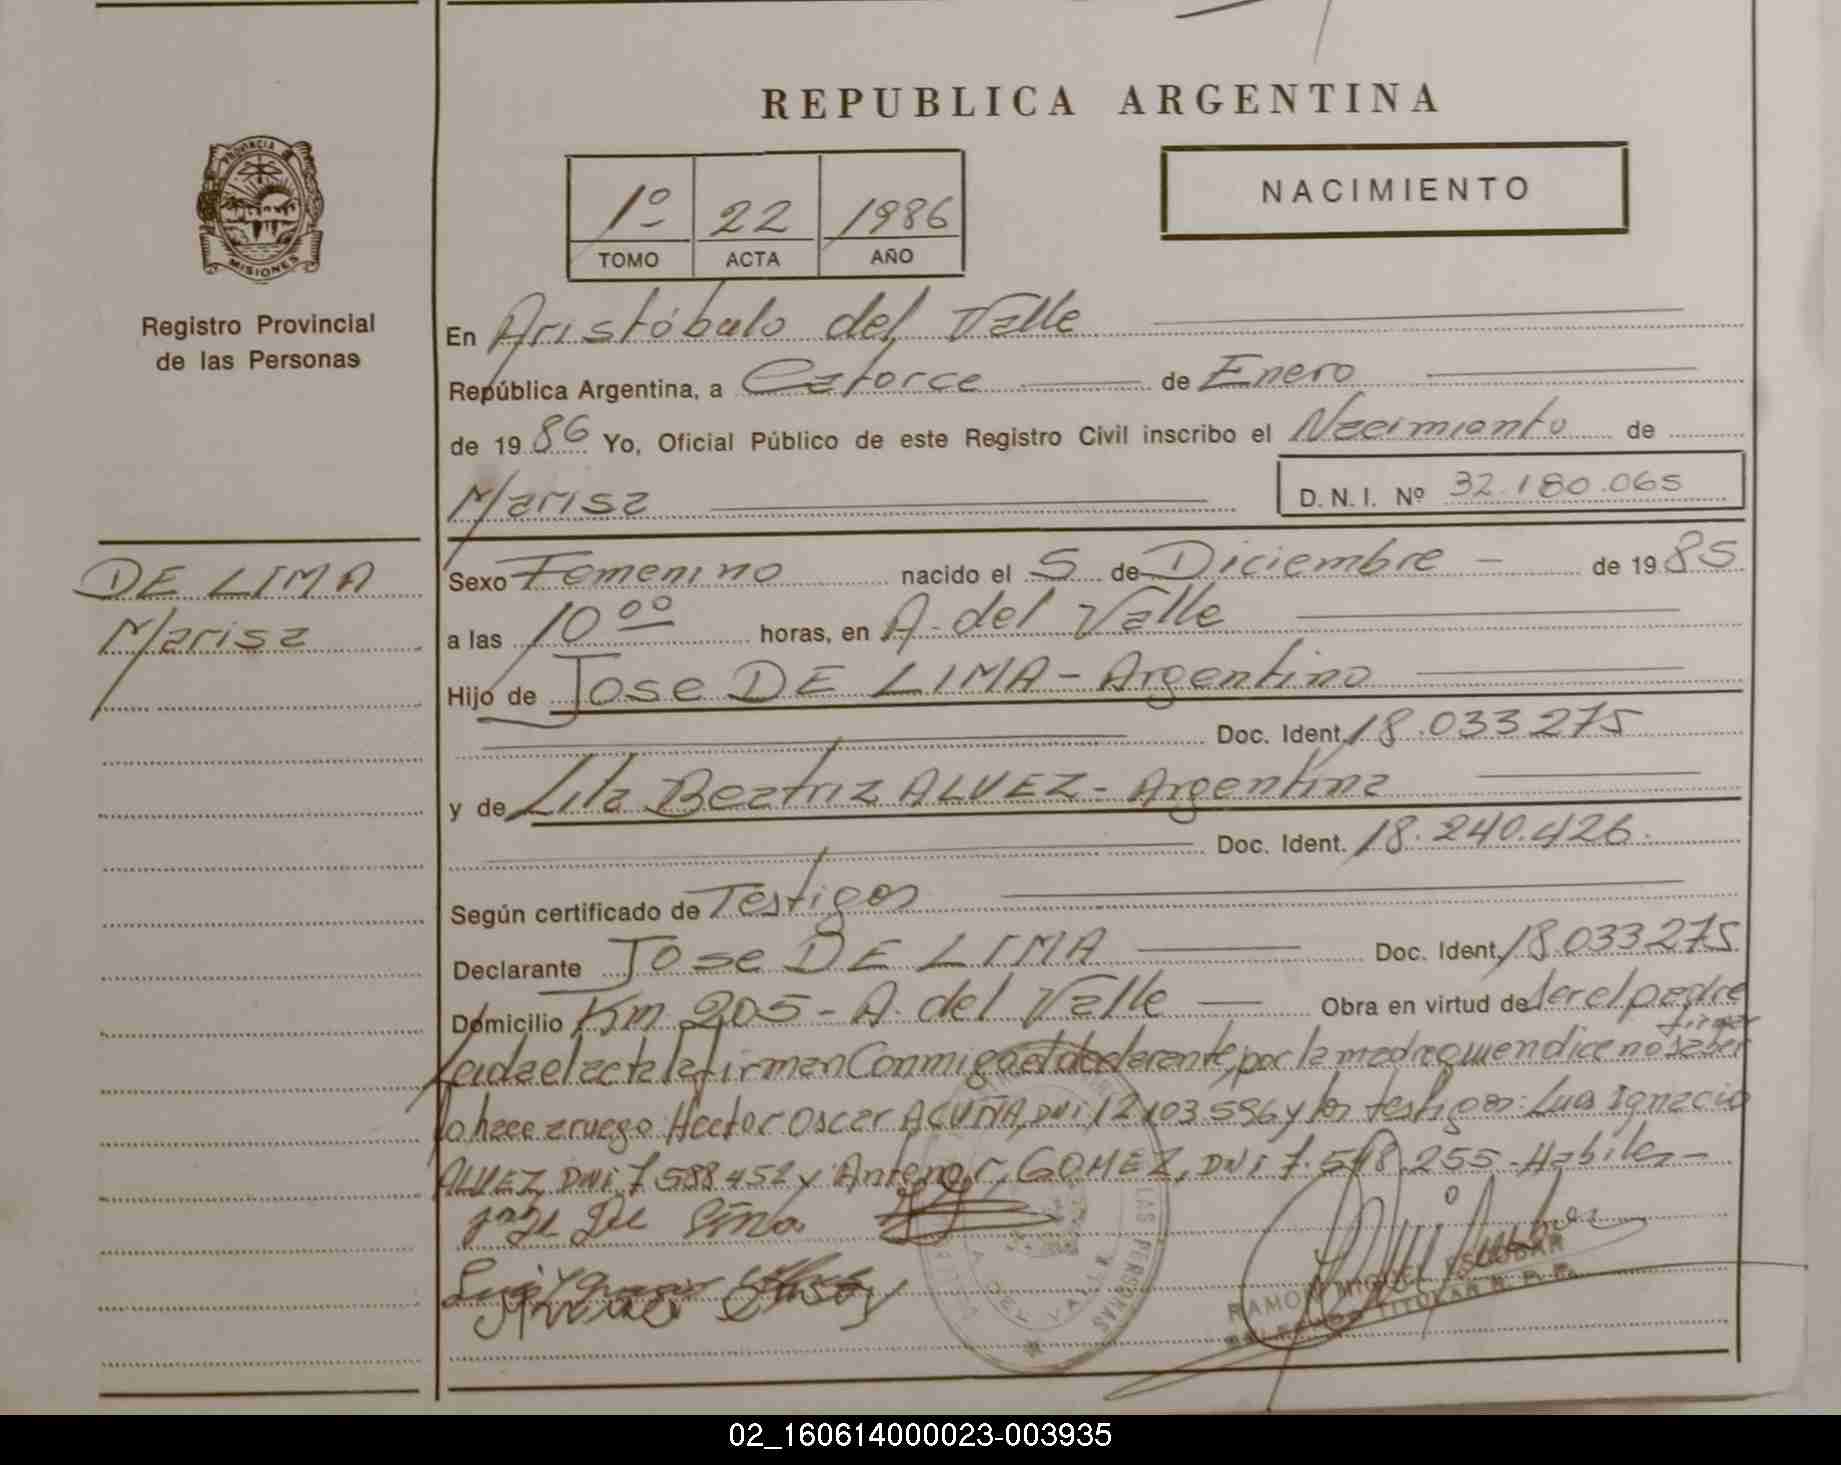 REPUBLICA ARGENTINA
PROVINCIA DE
MISIONES
Registro Provincial
de las Personas
1º 22 1986
TOMO ACTA AÑO
NACIMIENTO
En Aristóbulo del Valle
República Argentina, a Catorce de Enero
de 1986 Yo, Oficial Público de este Registro Civil inscribo el Nacimiento de
Marisa
D.N.I. Nº 32.180.065
DE LIMA
Marisa
Sexo Femenino nacido el 5 de Diciembre - de 1985
a las 10 ºº horas, en A. del Valle
Hijo de Jose DE LIMA - Argentino
Doc. Ident. 18.033275
y de Lita Beatriz ALVEZ - Argentina
Doc. Ident. 18.240.426.
Según certificado de Testigos
Declarante Jose DE LIMA Doc. Ident. 18.033275
Domicilio Km 205 - A. del Valle Obra en virtud de ser el padre
Leida el acta la firman Conmigo el declarante, por la madre quien dice no saber firmar
lo hace a ruego Hector Oscar ACUÑA, DNI 12.103.596 y los testigos: Luis Ignacio
ALVEZ, DNI 7.588.452 y Antenor, GOMEZ, DNI 7.548.255 - Habiles -
LAS PERSONAS
RAMON MIGUEL ESCOBAR
TITULAR R. P. P.
02_160614000023-003935